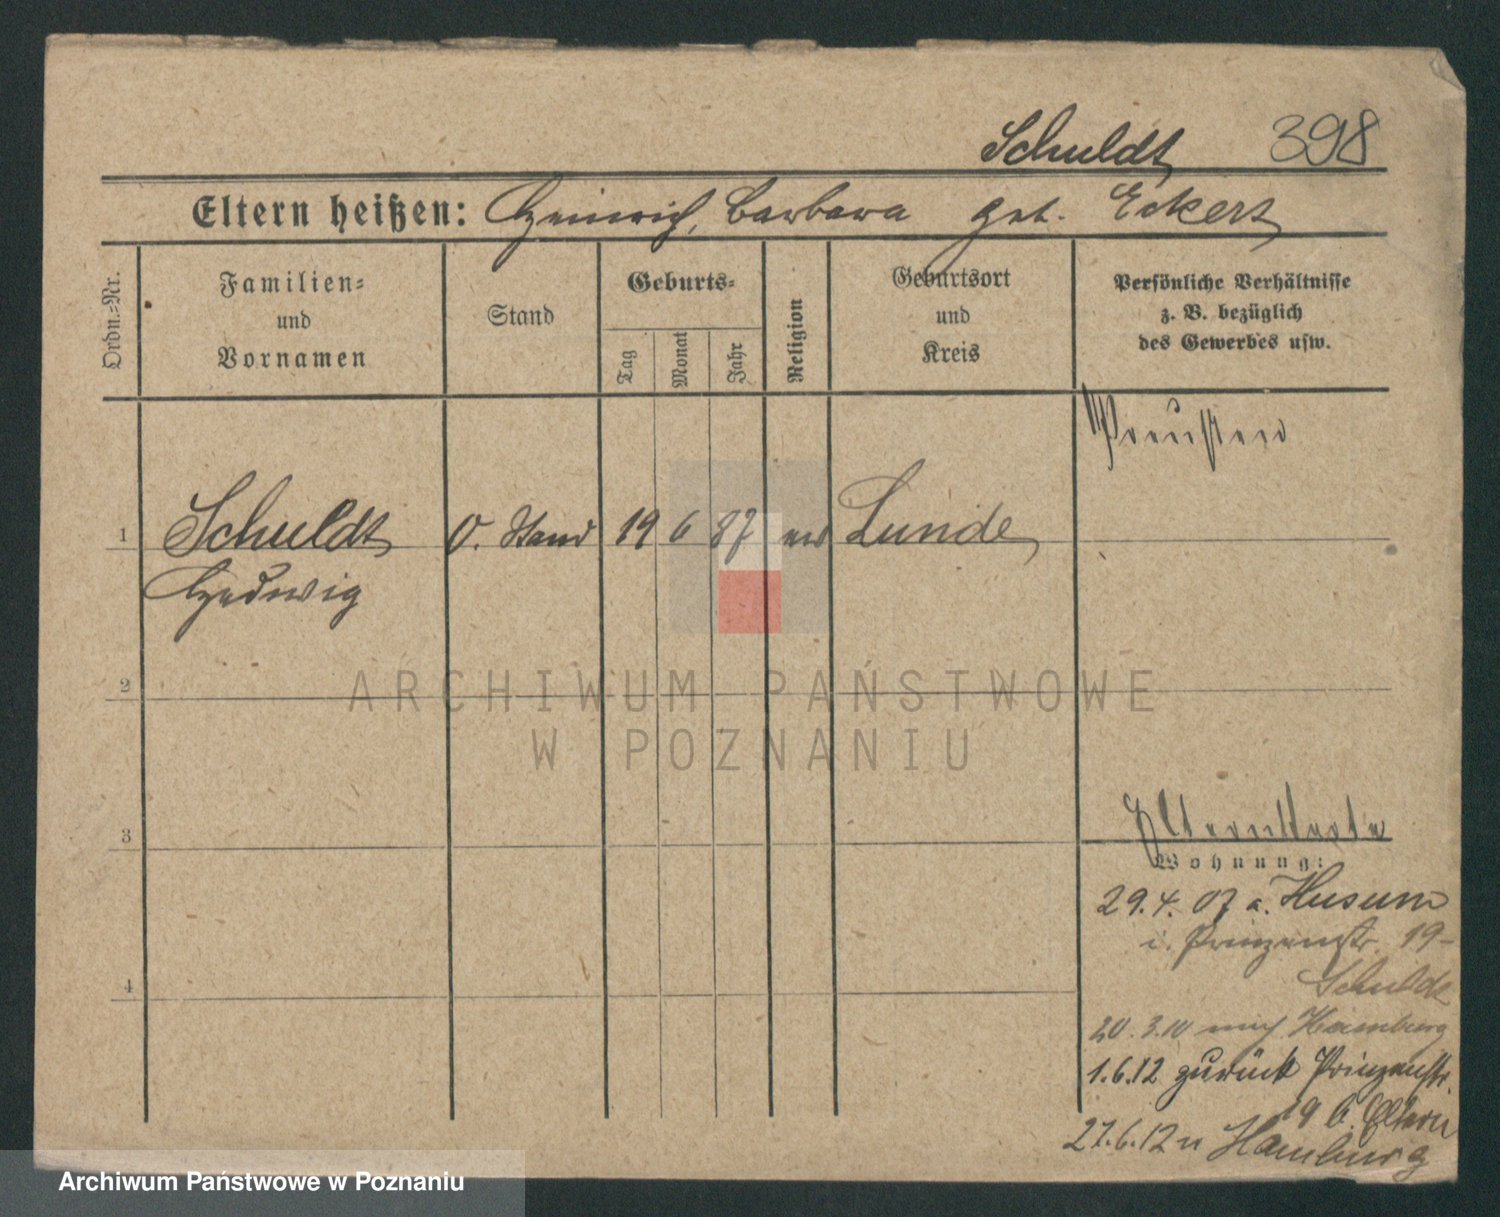 Schuldt 398
Eltern heißen: Heinrich, Barbara geb. Eckert
Ordn.-Nr.
Familien-
und
Vornamen
Stand
Geburts-
Tag
Monat
Jahr
Religion
Geburtsort
und
Kreis
Persönliche Verhältnisse
z. B. bezüglich
des Gewerbes usw.
Preußen
1 Schuldt o. Stand 19 6 87 ev Lunde
Hedwig
2
ARCHIWUM PAŃSTWOWE
W POZNANIU
3
Elternkarte
Wohnung:
29.4.07 a. Husum
i. Prinzenstr. 19-
Schuldt
4
20.3.10 nach Hamburg
1.6.12 zurück Prinzenstr.
19 b. Eltern
27.6.12 n Hamburg
Archiwum Państwowe w Poznaniu